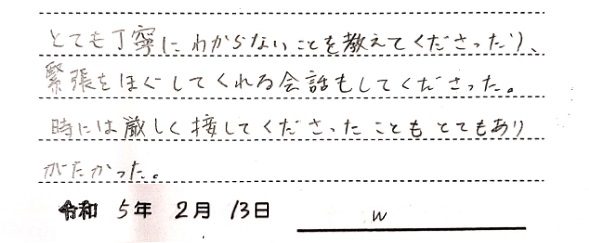 とても丁寧にわからないことを教えてくださったり、
緊張をほぐしてくれる会話もしてくださった。
時には厳しく接してくださったこともとてもあり
がたかった。
令和 5年 2月 13日 w